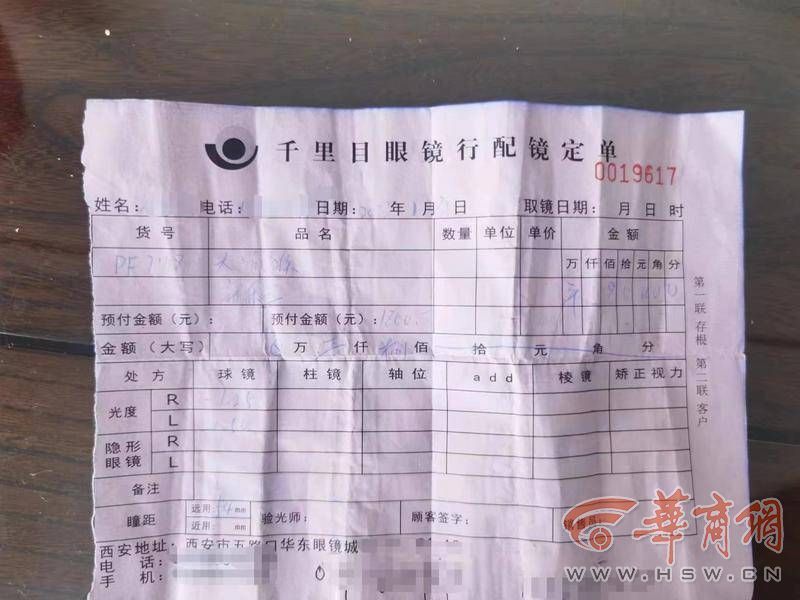 千里目眼镜行配镜定单
0019617
姓名: 电话: 日期: 年 月 日 取镜日期: 月 日 时
货号 品名 数量 单位 单价 金额
万 仟 佰 拾 元 角 分
预付金额(元): 预付金额(元):
金额(大写) 万 仟 佰 拾 元 角 分
处方 球镜 柱镜 轴位 add 棱镜 矫正视力
光度 R
L
隐形眼镜 R
L
备注
瞳距 远用: mm
近用: mm
验光师: 顾客签字: 销售员:
西安地址: 西安市五路口华东眼镜城
电话:
手机:
第一联 存根 第二联 客户
华商网
WWW.HSW.CN